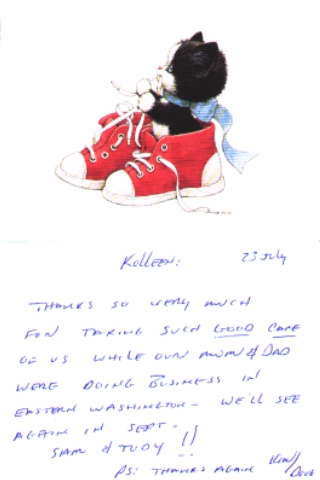 Kolleen: 23 July
THANKS SO VERY MUCH
FOR TAKING SUCH GOOD CARE
OF US WHILE OUR MOM & DAD
WERE DOING BUSINESS IN
EASTERN WASHINGTON - WE'LL SEE
AGAIN IN SEPT -
SAM & JUDY !!
PS: THANKS AGAIN Kim/
Doug